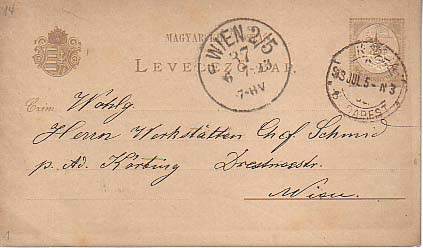 14
MAGYAR
LEVELEZŐ-LAP.
WIEN 2/5
37
6 7 93
7-8V
93 JUL. 5-N3
BUDAPEST
Czim:
Wohlg
Herrn Werkstätten Chef Schmid
p. Ad. Körting
Wien.
1